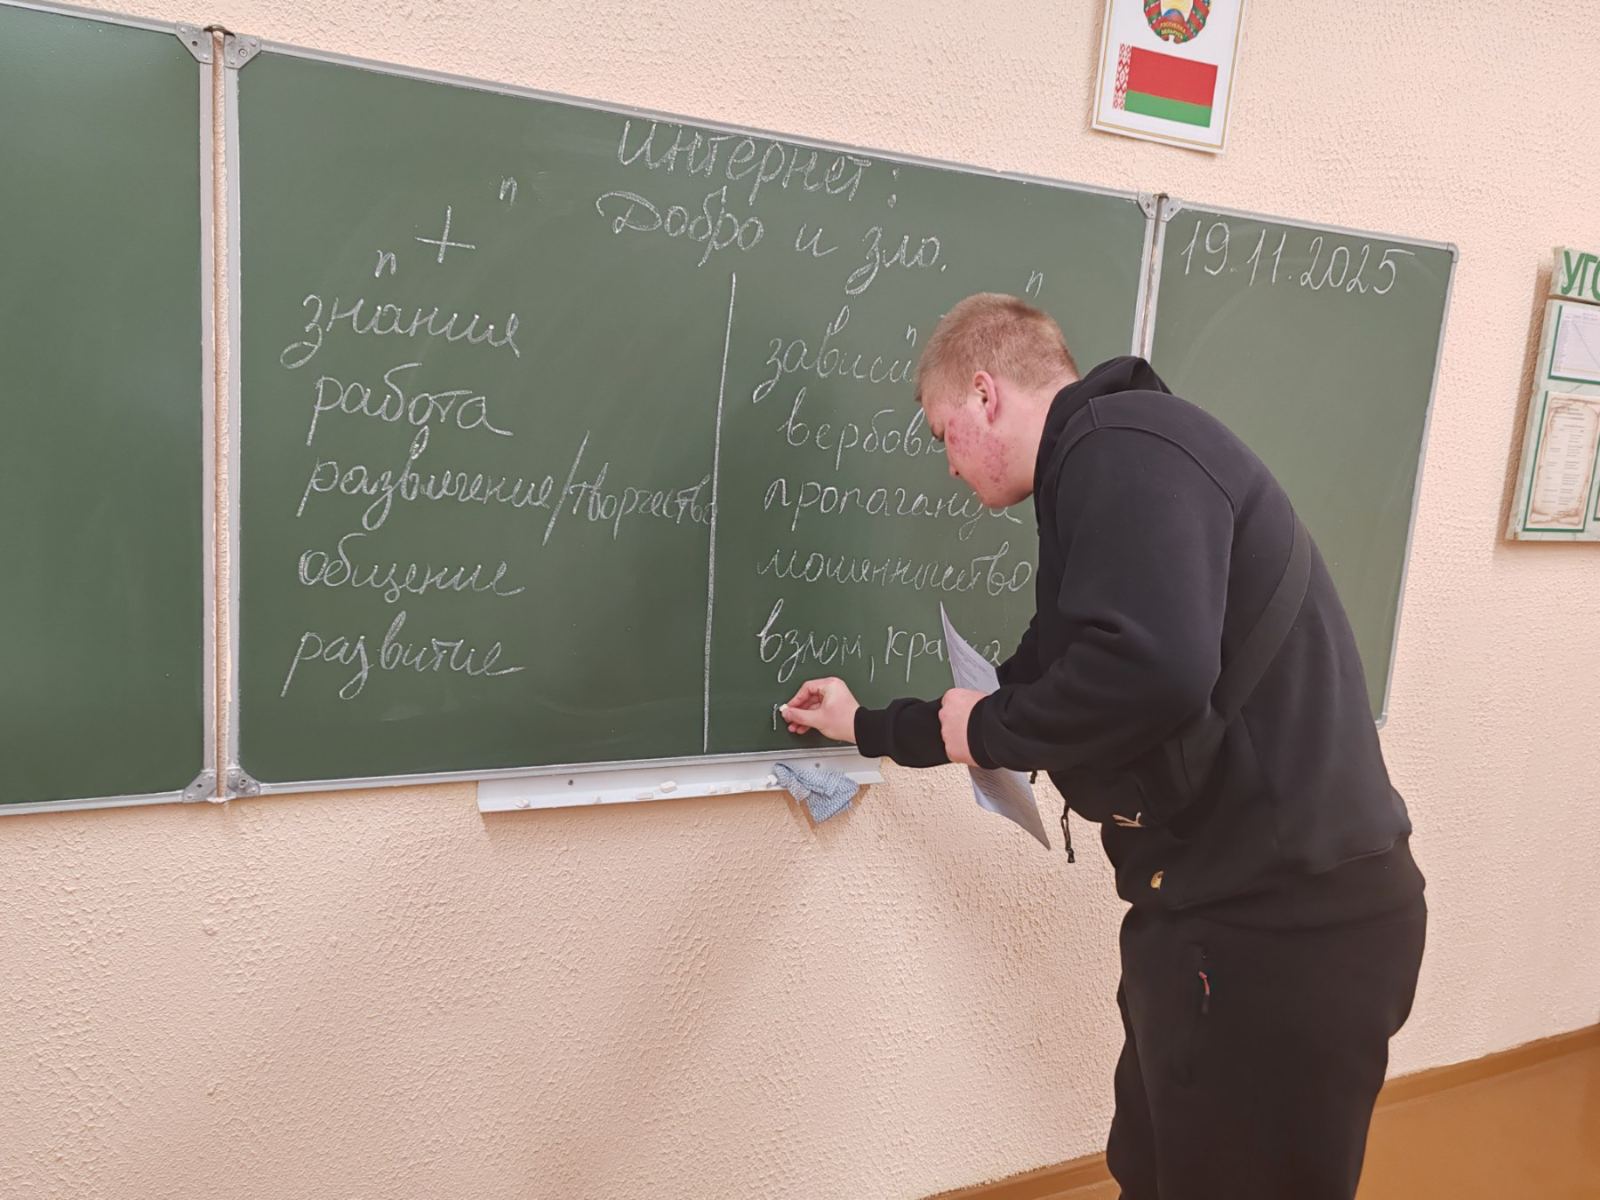 Интернет:
Добро и зло.
19.11.2025
п
+
п
знания
работа
развлечение/творчество
общение
развитие
п
п
пропаганда
мошенничество
взлом, кража
УГО